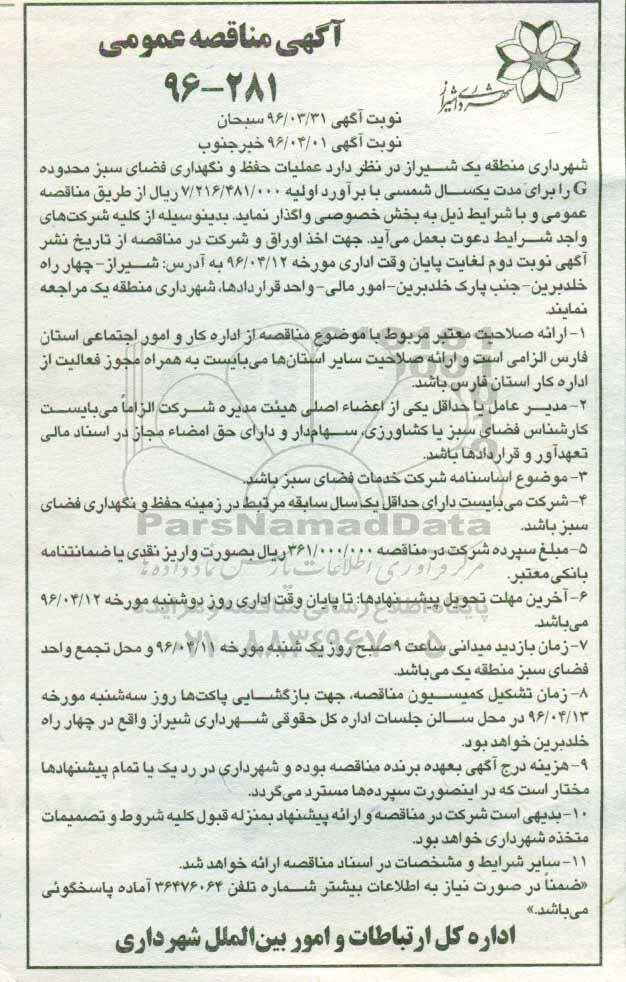 آگهی مناقصه عمومی
۹۶-۲۸۱
شهرداری شیراز
نوبت آگهی ۹۶/۰۳/۳۱ سبحان
نوبت آگهی ۹۶/۰۴/۰۱ خبرجنوب
شهرداری منطقه یک شیراز در نظر دارد عملیات حفظ و نگهداری فضای سبز محدوده
G را برای مدت یکسال شمسی با برآورد اولیه ۷/۲۱۶/۴۸۱/۰۰۰ ریال از طریق مناقصه
عمومی و با شرایط ذیل به بخش خصوصی واگذار نماید. بدینوسیله از کلیه شرکت‌های
واجد شرایط دعوت بعمل می‌آید. جهت اخذ اوراق و شرکت در مناقصه از تاریخ نشر
آگهی نوبت دوم لغایت پایان وقت اداری مورخه ۹۶/۰۴/۱۲ به آدرس: شیراز-چهار راه
خلدبرین-جنب پارک خلدبرین-امور مالی-واحد قراردادها، شهرداری منطقه یک مراجعه
نمایند.
۱-ارائه صلاحیت معتبر مربوط با موضوع مناقصه از اداره کار و امور اجتماعی استان
فارس الزامی است و ارائه صلاحیت سایر استان‌ها می‌بایست به همراه مجوز فعالیت از
اداره کار استان فارس باشد.
۲-مدیر عامل یا حداقل یکی از اعضاء اصلی هیئت مدیره شرکت الزاماً می‌بایست
کارشناس فضای سبز یا کشاورزی، سهام‌دار و دارای حق امضاء مجاز در اسناد مالی
تعهدآور و قراردادها باشد.
۳-موضوع اساسنامه شرکت خدمات فضای سبز باشد.
۴-شرکت می‌بایست دارای حداقل یک سال سابقه مرتبط در زمینه حفظ و نگهداری فضای
سبز باشد.
ParsNamadData
۵-مبلغ سپرده شرکت در مناقصه ۳۶۱/۰۰۰/۰۰۰ ریال بصورت واریز نقدی یا ضمانتنامه
بانکی معتبر.
مرکز فرآوری اطلاعات پارس نماد داده ها
۶-آخرین مهلت تحویل پیشنهادها: تا پایان وقت اداری روز دوشنبه مورخه ۹۶/۰۴/۱۲
می‌باشد.
پایگاه اطلاع رسانی مناقصه و مزایده
۷-زمان بازدید میدانی ساعت ۹ صبح روز یک شنبه مورخه ۹۶/۰۴/۱۱ و محل تجمع واحد
۰۲۱-۸۸۳۴۹۶۷۰-۵
فضای سبز منطقه یک می‌باشد.
۸-زمان تشکیل کمیسیون مناقصه، جهت بازگشایی پاکت‌ها روز سه‌شنبه مورخه
۹۶/۰۴/۱۳ در محل سالن جلسات اداره کل حقوقی شهرداری شیراز واقع در چهار راه
خلدبرین خواهد بود.
۹-هزینه درج آگهی بعهده برنده مناقصه بوده و شهرداری در رد یک یا تمام پیشنهادها
مختار است که در اینصورت سپرده‌ها مسترد می‌گردد.
۱۰-بدیهی است شرکت در مناقصه و ارائه پیشنهاد بمنزله قبول کلیه شروط و تصمیمات
متخذه شهرداری خواهد بود.
۱۱-سایر شرایط و مشخصات در اسناد مناقصه ارائه خواهد شد.
«ضمناً در صورت نیاز به اطلاعات بیشتر شماره تلفن ۳۶۴۷۶۰۶۴ آماده پاسخگوئی
می‌باشد.»
اداره کل ارتباطات و امور بین‌الملل شهرداری